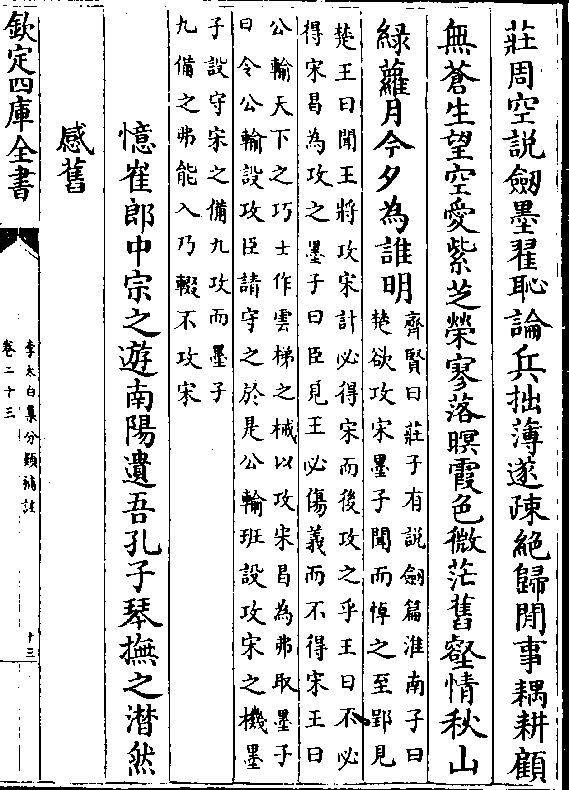 莊周空說劔墨翟恥論兵拙薄遂疎絶歸閒事耦耕顧
無蒼生望空愛紫芝榮寥落暝霞色微茫舊壑情秋山
緑蘿月今夕為誰明
齊賢曰莊子有說劔篇淮南子曰
楚欲攻宋墨子聞而悼之至郢見
楚王曰聞王將攻宋計必得宋而後攻之乎王曰不必
得宋曷為攻之墨子曰臣見王必傷義而不得宋王曰
公輸天下之巧士作雲梯之械以攻宋曷為弗取墨子
曰令公輸設攻臣請守之於是公輸班設攻宋之機墨
子設守宋之備九攻而墨子
九備之弗能入乃輟不攻宋
憶崔郎中宗之遊南陽遺吾孔子琴撫之潸然
感舊
欽定四庫全書
李太白集分類補註
卷二十三
十三